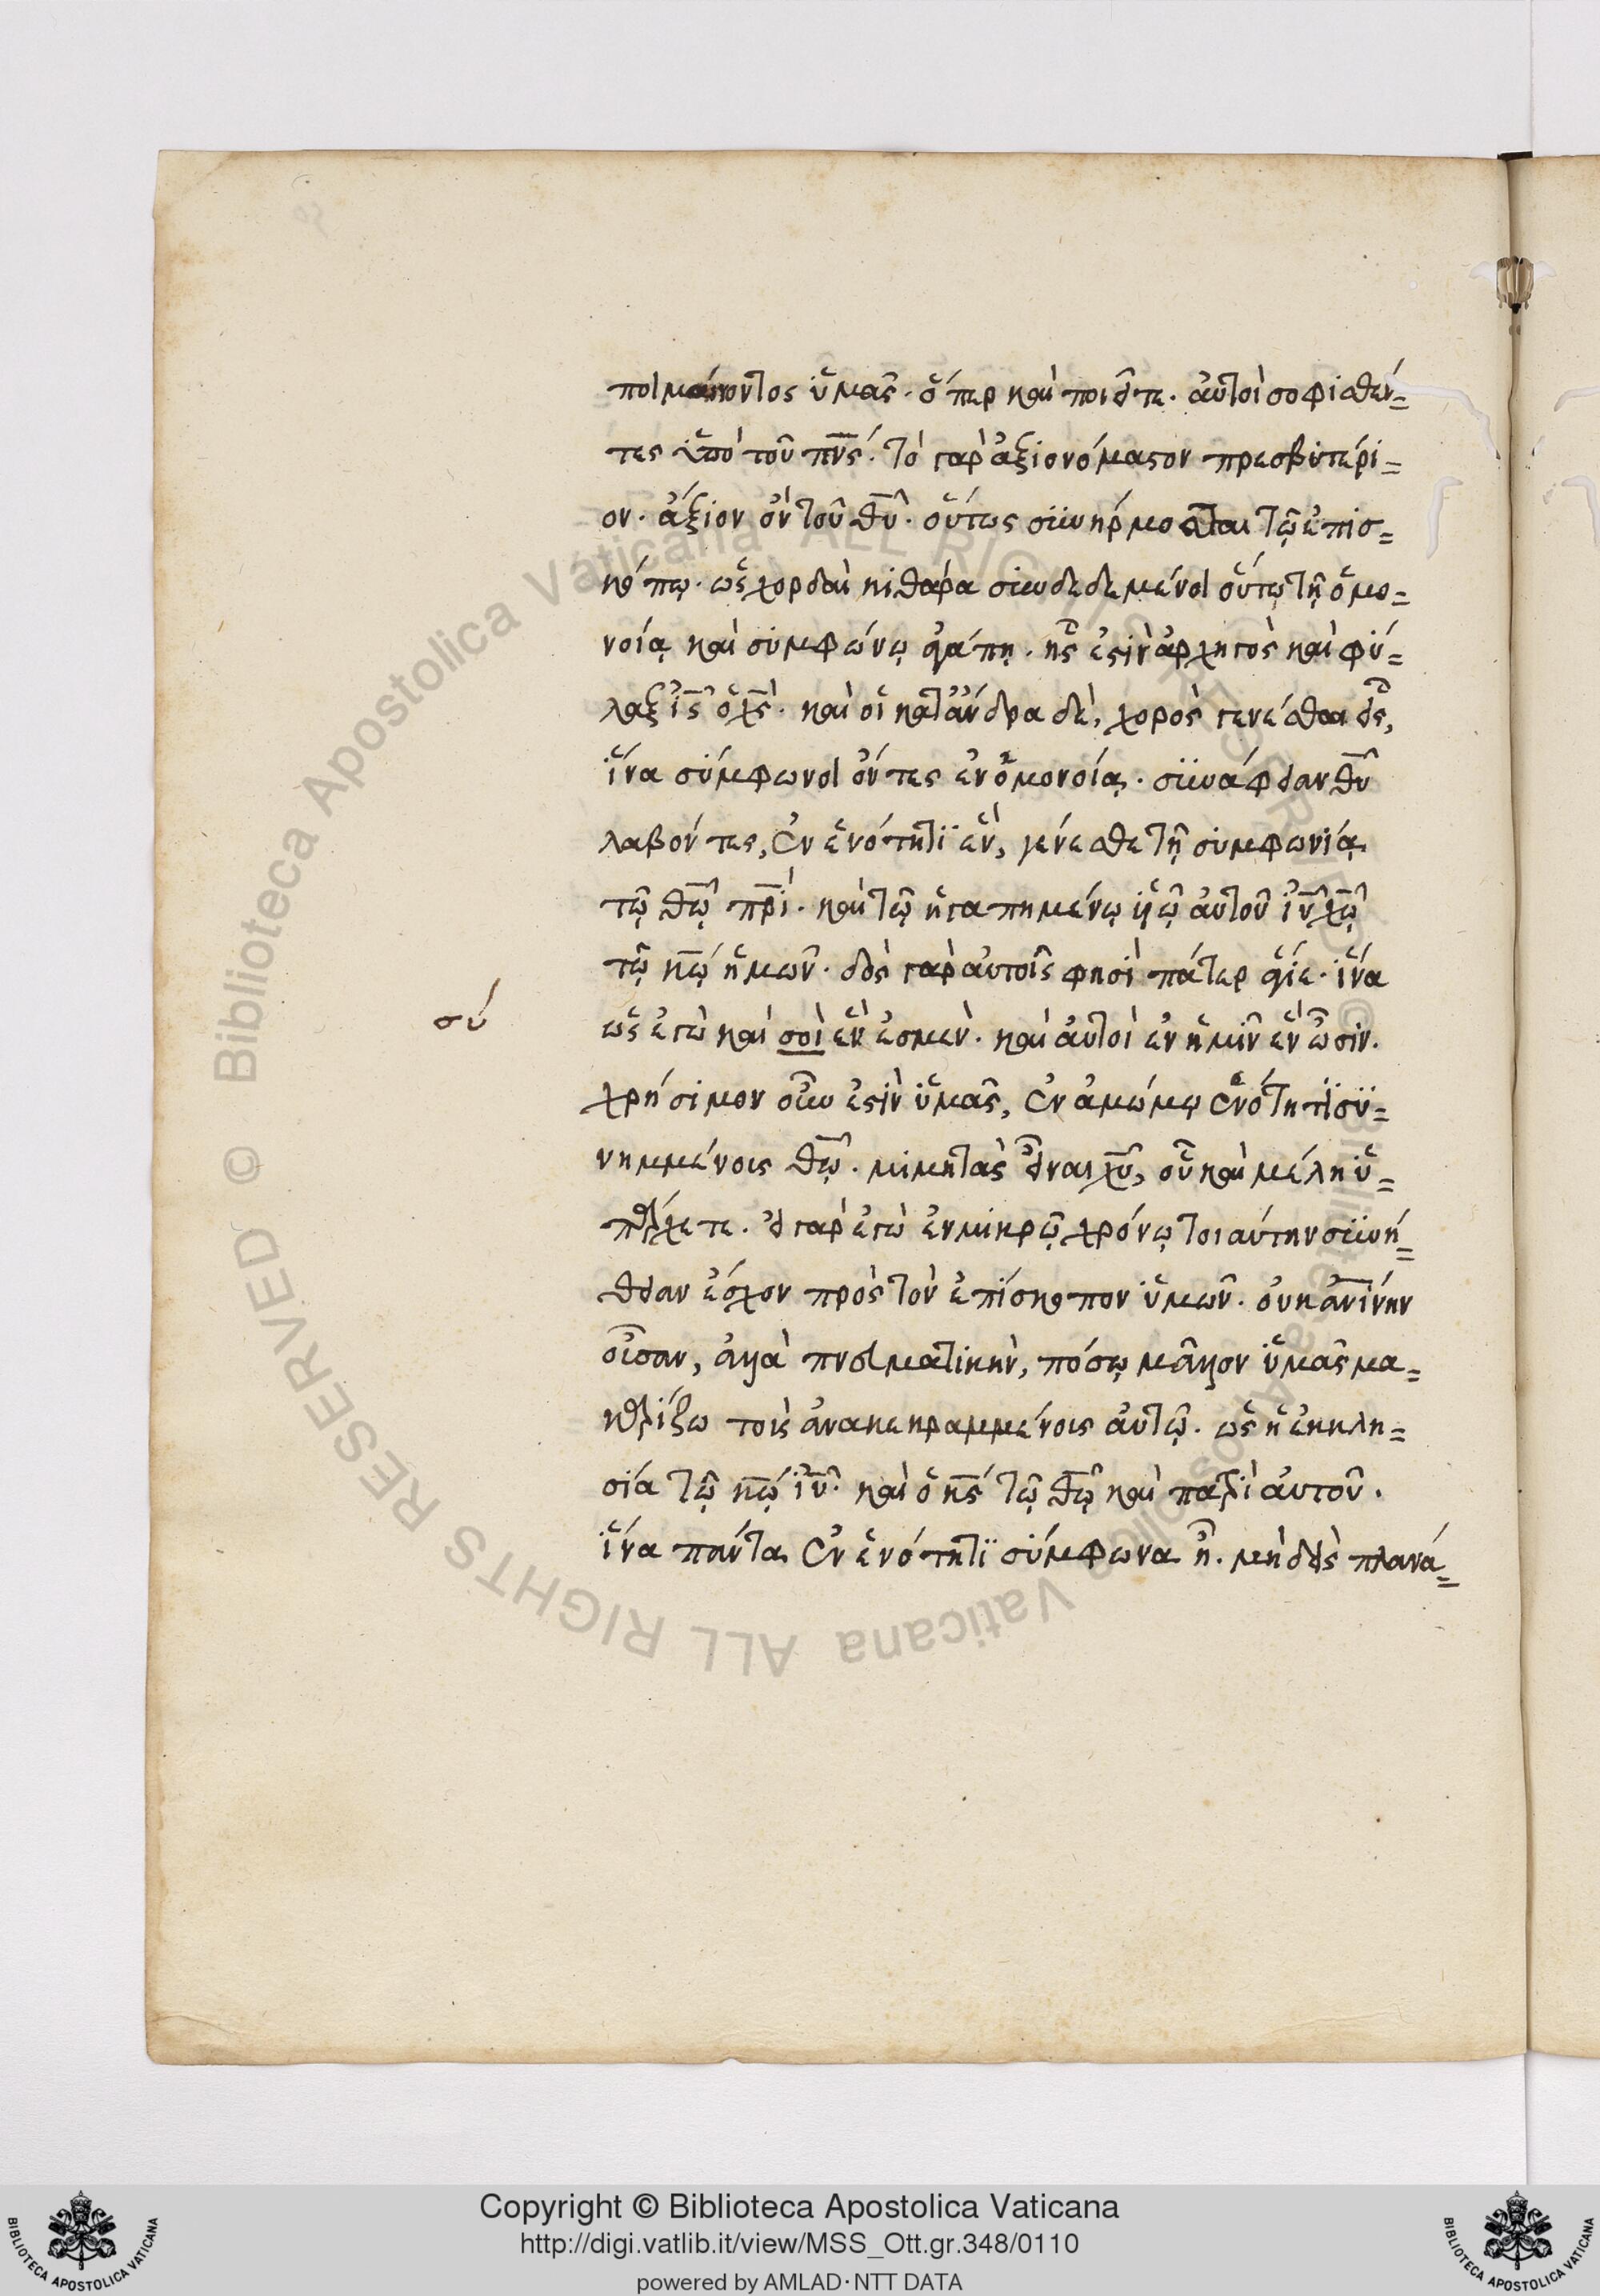 ποιμαίνοντος ὑμᾶς. ὅπερ καὶ ποιεῖτε. αὐτοὶ σοφισθέν=
τες ὑπὸ τοῦ πν̅ς. τὸ γὰρ ἀξιονόμαστον πρεσβυτέρι=
ον. ἄξιον ὂν τοῦ θ̅υ. οὕτως συνήρμοσται τῷ ἐπισ=
κόπῳ. ὡς χορδαὶ κιθάρα συνδεδεμένοι οὕτω τῇ ὁμο=
νοίᾳ καὶ συμφώνῳ ἀγάπῃ. ἧς ἐστὶν ἀρχηγὸς καὶ φύ=
λαξ ι̅ς ὁ χ̅ς. καὶ οἱ κατ' ἄνδρα δὲ, χορὸς γενέσθαι εἷς,
ἵνα σύμφωνοι ὄντες ἐν ὁμονοίᾳ. συνάφειαν θ̅υ
λαβόντες, ἐν ἑνότητι ἓν, γένεσθε τῇ συμφωνίᾳ
τῷ θ̅ω π̅ρι. καὶ τῷ ἠγαπημένῳ υἱῷ αὐτοῦ ι̅υ χ̅ω
τῷ κ̅ω ἡμῶν. δὸς γὰρ αὐτοῖς φησὶ πάτερ ἅγιε. ἵνα
ὡς ἐγὼ καὶ σοὶ ἓν ἐσμεν. καὶ αὐτοὶ ἐν ἡμῖν ἓν ὦσιν.
σύ
χρήσιμον οὖν ἐστὶν ὑμᾶς, ἐν ἀμώμῳ ἑνότητι συ=
νημμένοις θ̅ω. μιμητὰς εἶναι χ̅υ, οὗ καὶ μέλη ὑ=
πάρχετε. εἰ γὰρ ἐγὼ ἐν μικρῷ χρόνῳ τοιαύτην συνή=
θειαν ἔσχον πρὸς τὸν ἐπίσκοπον ὑμῶν. οὐκ ἀν̅ίνην
οὖσαν, ἀλλὰ πνευματικὴν, πόσῳ μᾶλλον ὑμᾶς μα=
καρίζω τοὺς ἀνακεκραμμένοις αὐτῷ. ὡς ἡ ἐκκλη=
σία τῷ κ̅ω ι̅υ. καὶ ὁ κ̅ς τῷ θ̅ω καὶ πατρὶ αὐτοῦ.
ἵνα πάντα ἐν ἑνότητι σύμφωνα ᾖ. μηδεὶς πλανά=
Copyright © Biblioteca Apostolica Vaticana
http://digi.vatlib.it/view/MSS_Ott.gr.348/0110
powered by AMLAD·NTT DATA
BIBLIOTECA APOSTOLICA VATICANA
BIBLIOTECA APOSTOLICA VATICANA
© Biblioteca Apostolica Vaticana ALL RIGHTS RESERVED © Biblioteca Apostolica Vaticana ALL RIGHTS RESERVED